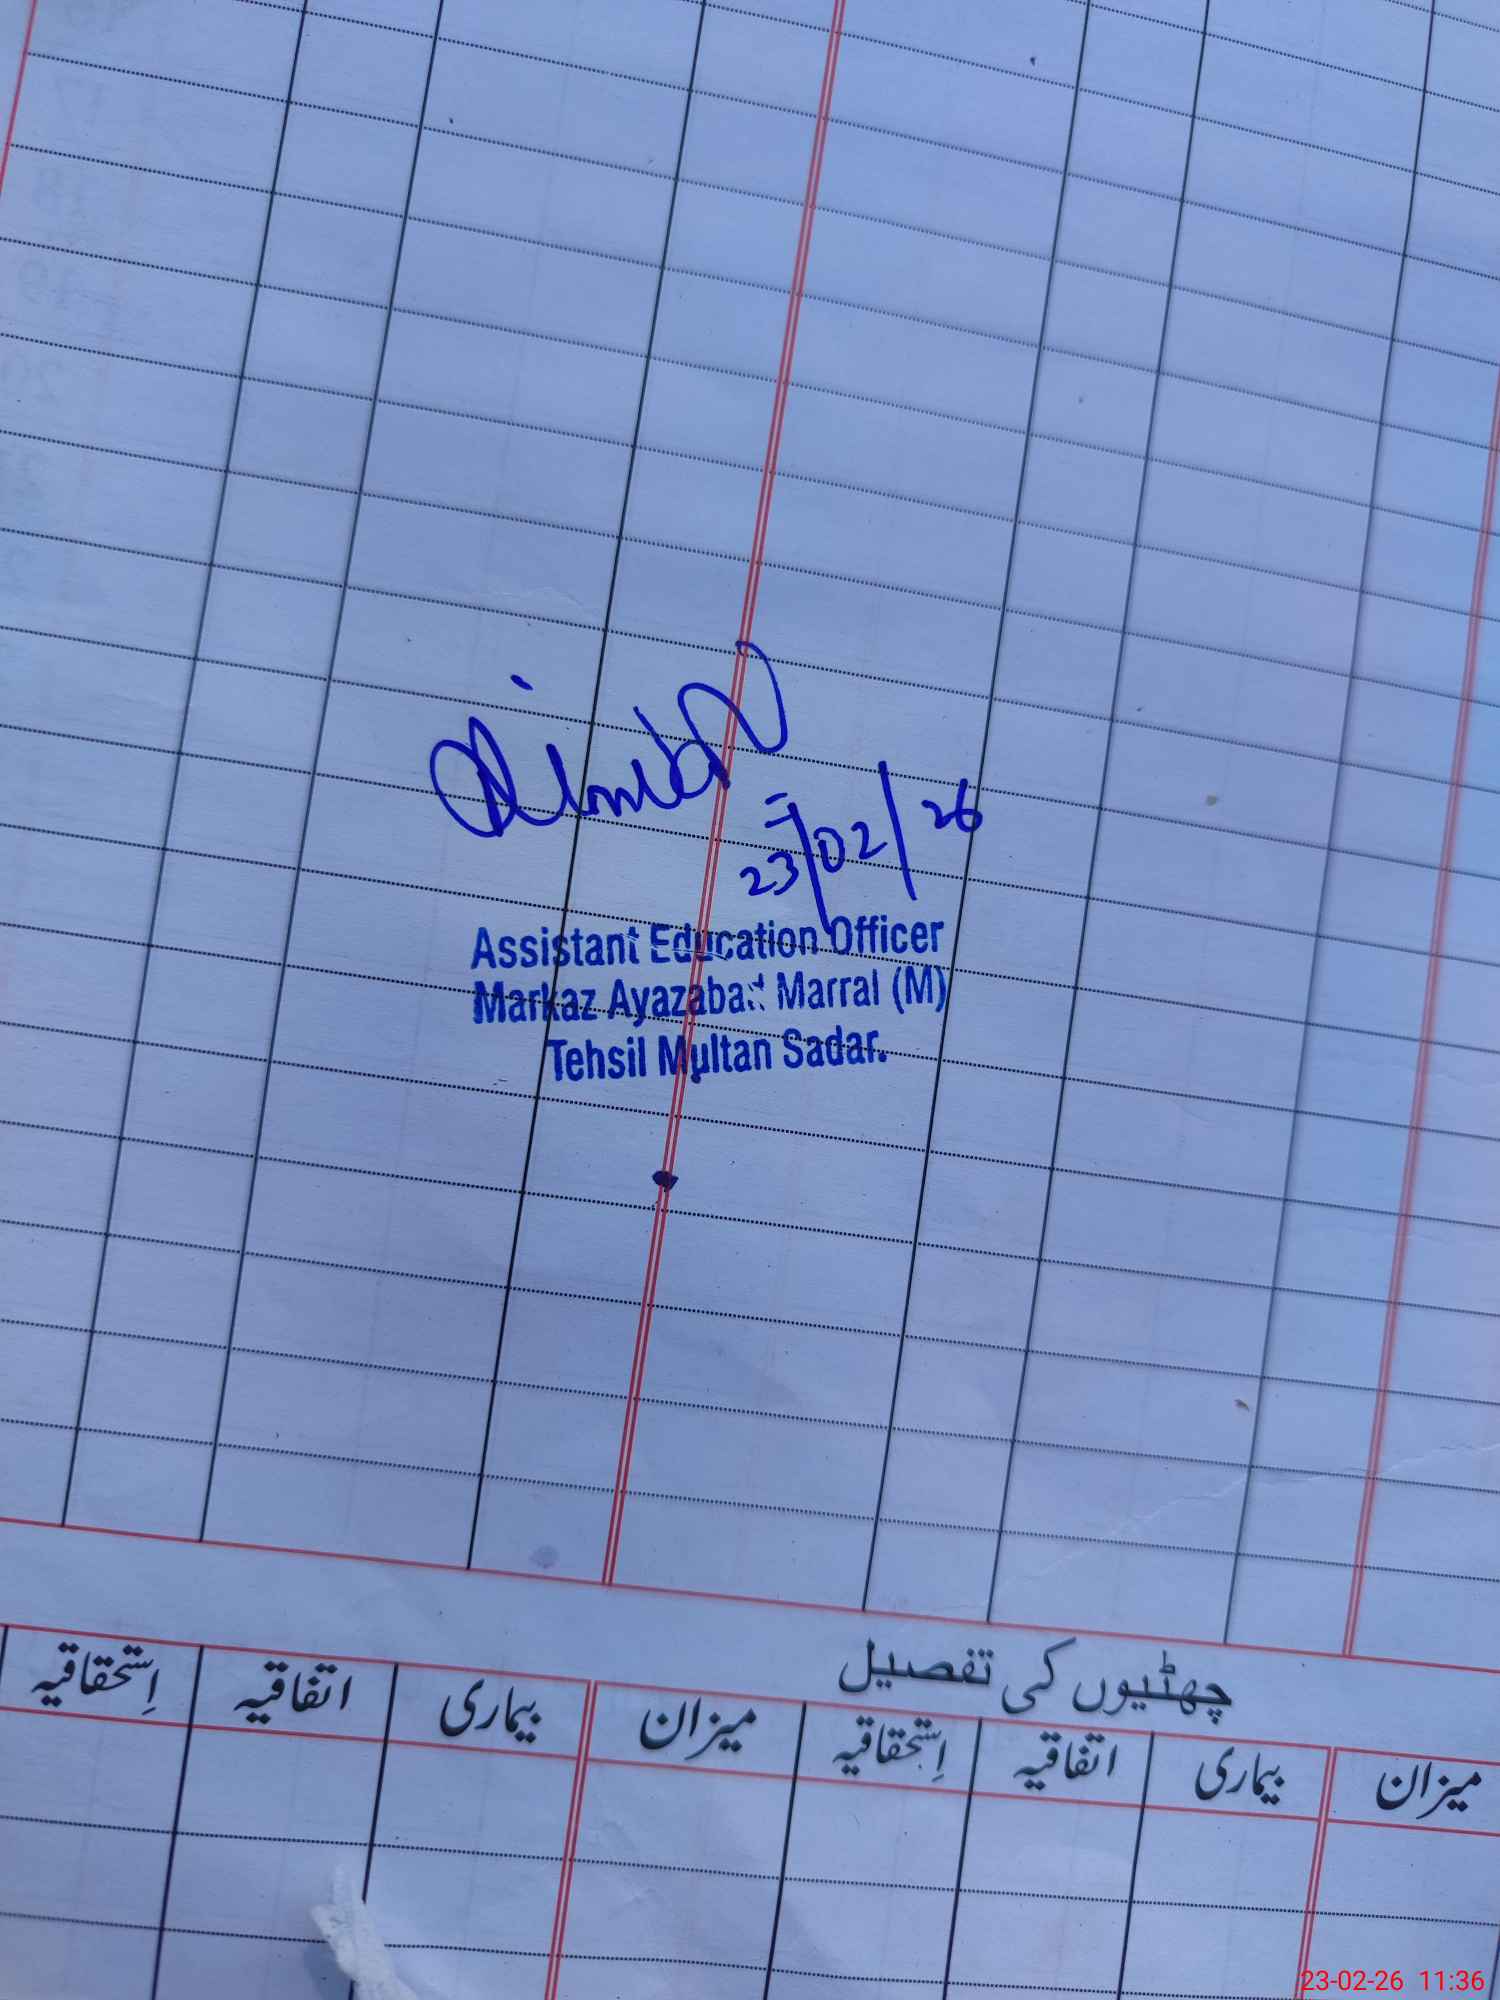 23/02/26
Assistant Education Officer
Markaz Ayazabad Marral (M)
Tehsil Multan Sadar.
چھٹیوں کی تفصیل
میزان بیماری اتفاقیہ اِستحقاقیہ میزان بیماری اتفاقیہ اِستحقاقیہ
23-02-26 11:36